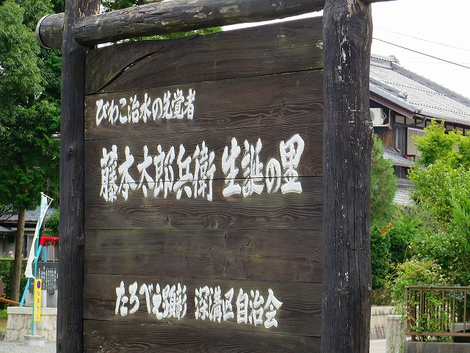 びわこ治水の先覚者
藤本太郎兵衛 生誕の里
たろべゑ顕彰 深溝区自治会